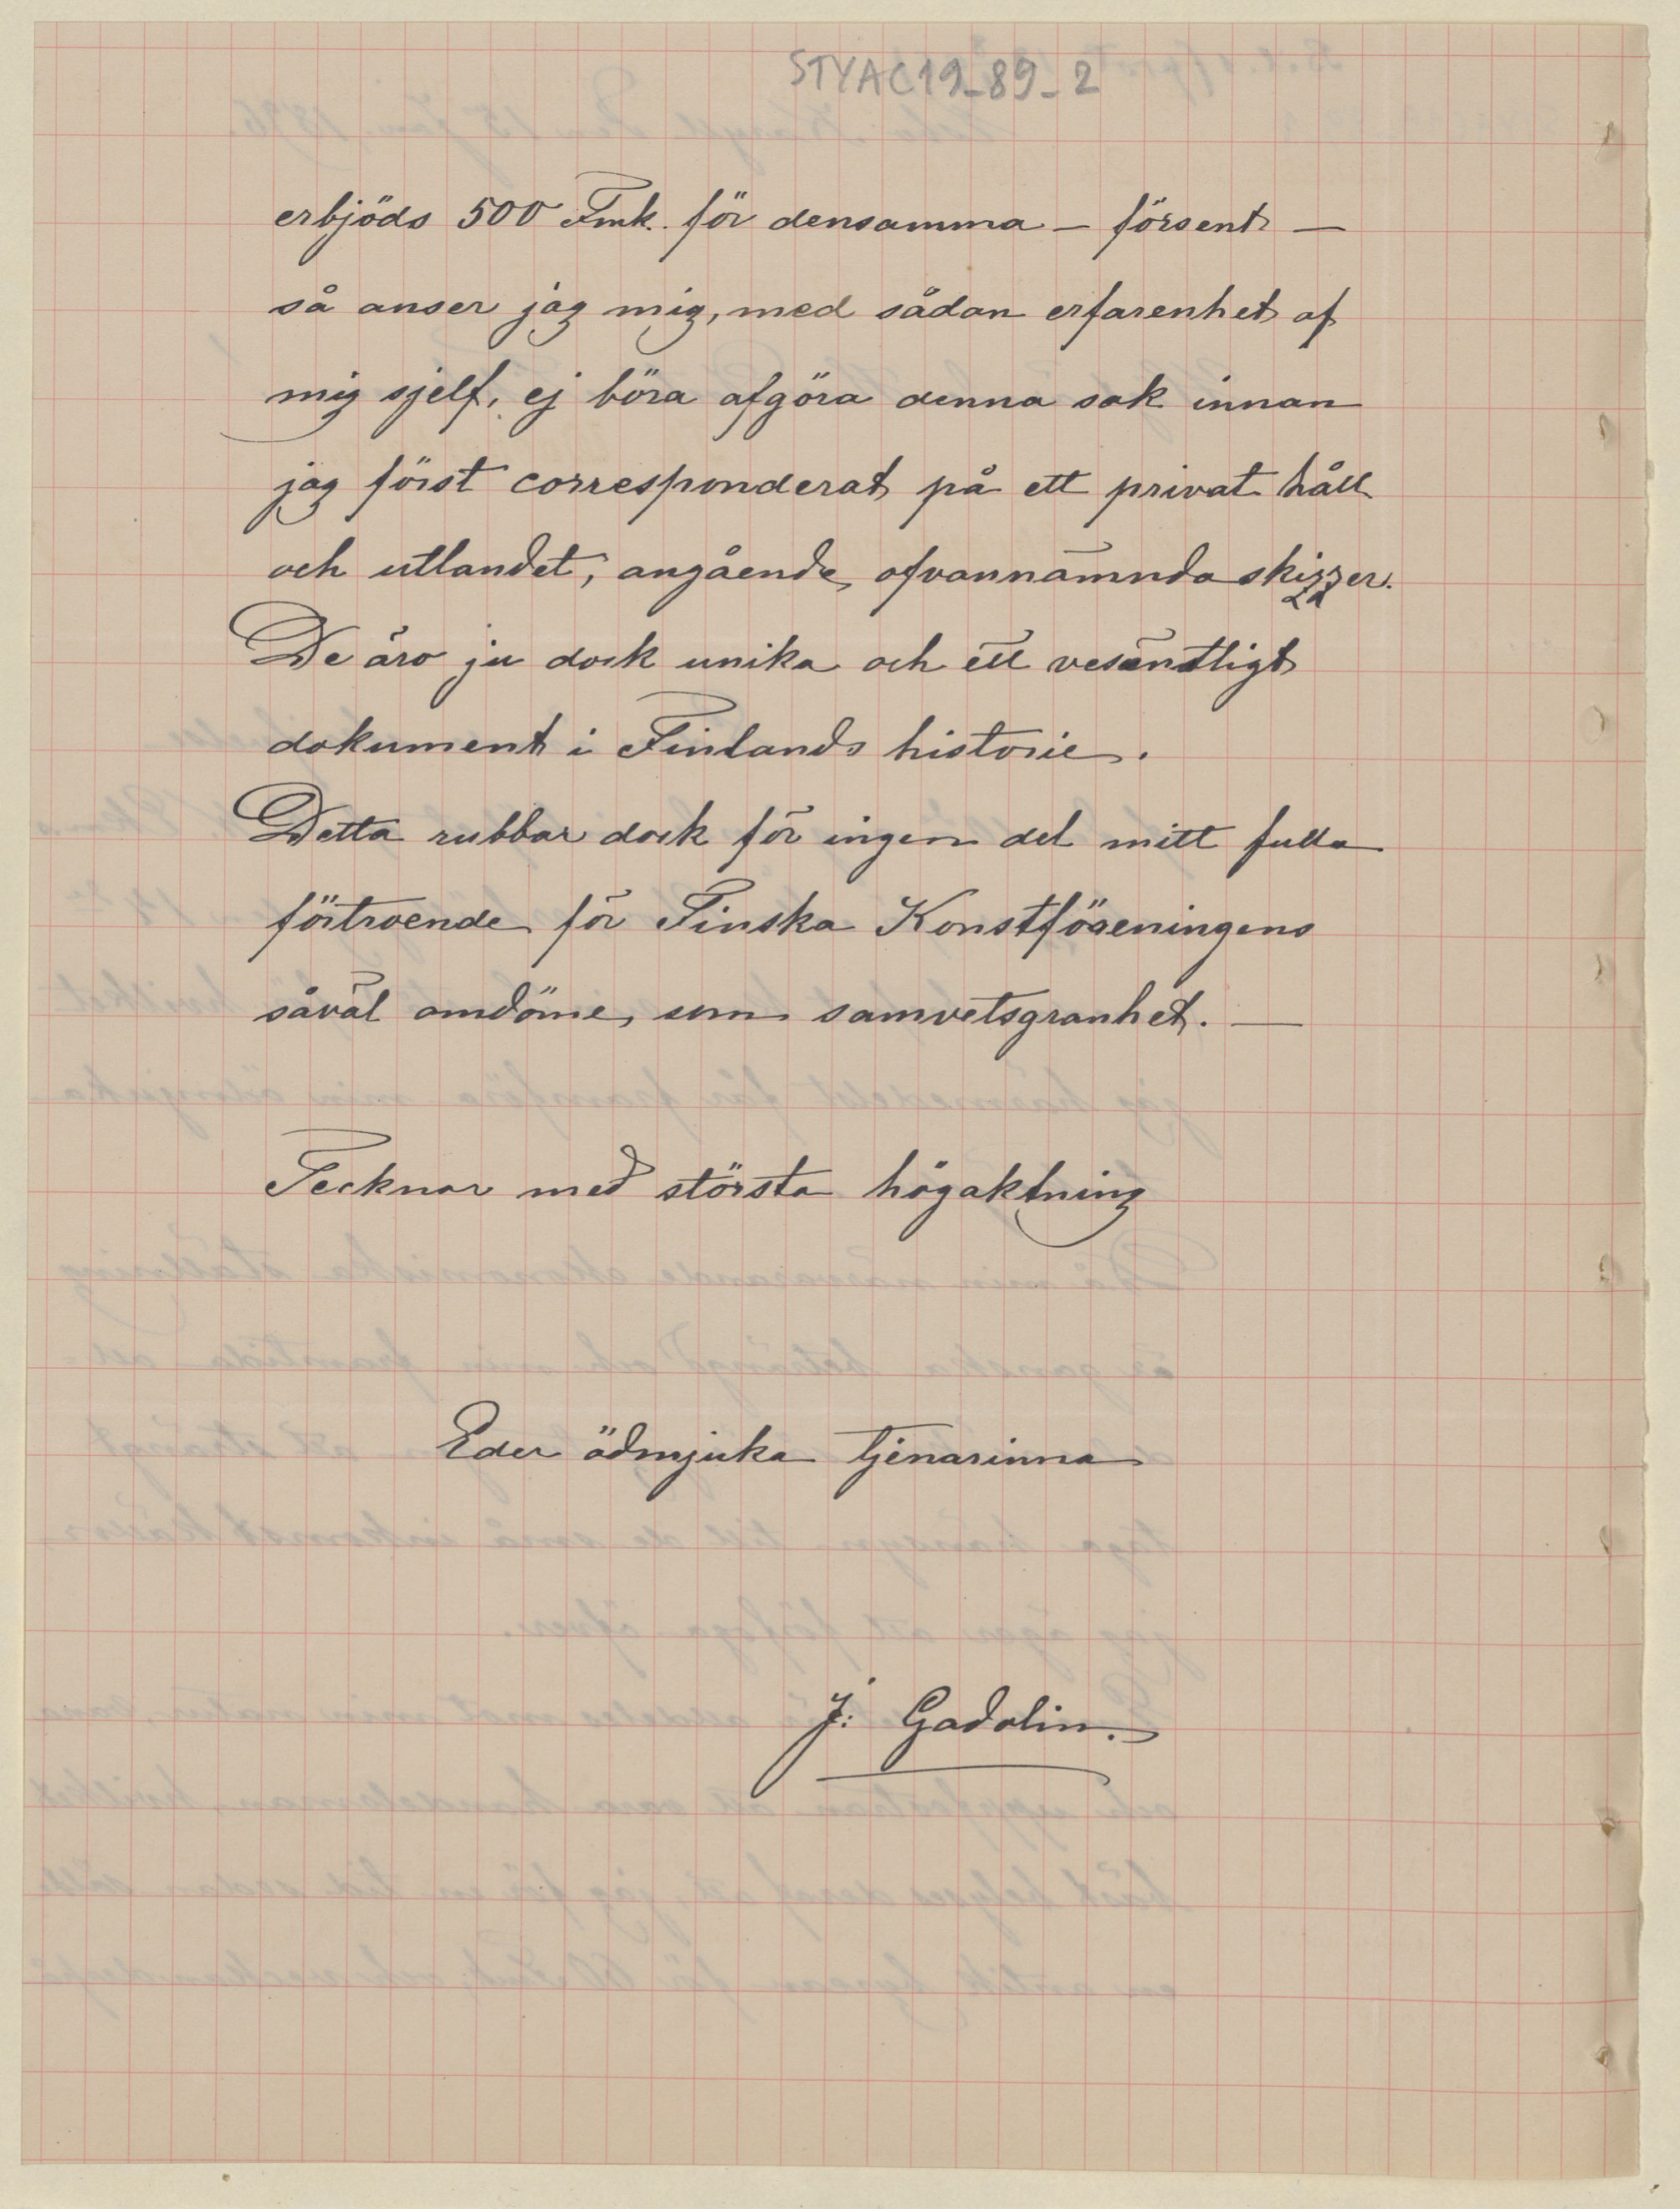 STYAC19_89_2
erbjöds 500 Fmk. för densamma – försent –
så anser jag mig, med sådan erfarenhet af
mig sjelf, ej böra afgöra denna sak innan
jag först corresponderat på ett privat håll
och utlandet, angående ofvannämnda skizzer.
De äro ju dock unika och ett vesentligt
dokument i Finlands historie.
Detta rubbar dock för ingen del mitt fulla
förtroende för Finska Konstföreningens
såväl omdöme, som samvetsgranhet. —
Tecknar med största högaktning
Eder ödmjuka tjenarinna
J: Gadolin.